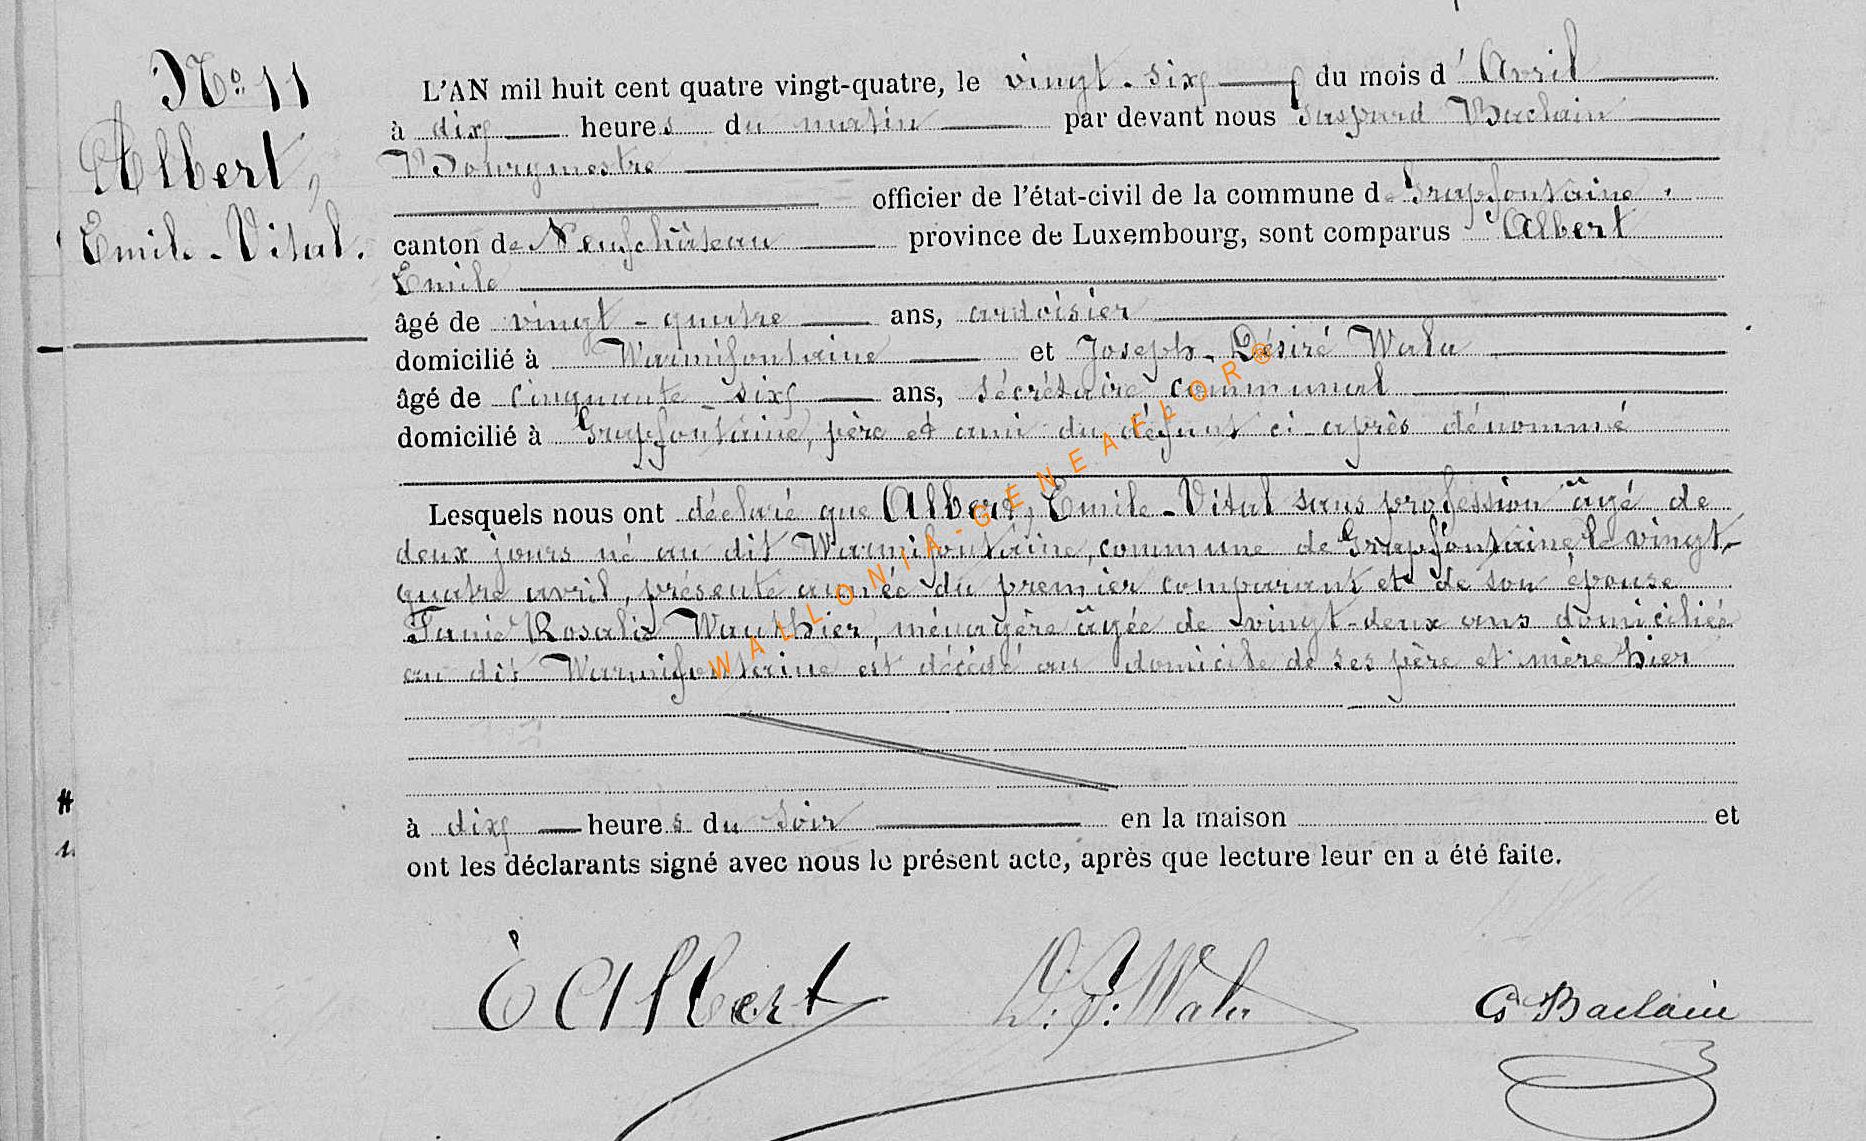 N° 11
Albert,
Emile-Vital.
L'AN mil huit cent quatre vingt-quatre, le vingt-six du mois d'Avril
à dix heures du matin par devant nous Gaspard Baclain
Bourgmestre
officier de l'état-civil de la commune de Grapfontaine,
canton de Neufchâteau province de Luxembourg, sont comparus Albert
Emile
âgé de vingt-quatre ans, ardoisier
domicilié à Warmifontaine et Joseph-Désiré Wala
âgé de cinquante-six ans, sécrétaire communal
domicilié à Grapfontaine, père et ami du défunt ci-après dénommé
Lesquels nous ont déclaré que Albert, Emile-Vital sans profession âgé de
deux jours né au dit Warmifontaine, commune de Grapfontaine, le vingt-
quatre avril, présente année du premier comparant et de son épouse
Fanie Rosalie Wauthier, ménagère âgée de vingt-deux ans domiciliée
au dit Warmifontaine est décédé au domicile de ses père et mère hier
à dix heures du soir en la maison et
ont les déclarants signé avec nous le présent acte, après que lecture leur en a été faite.
E Albert D. J. Wala G Baclain
WALLONIA-GENEAFLOR®